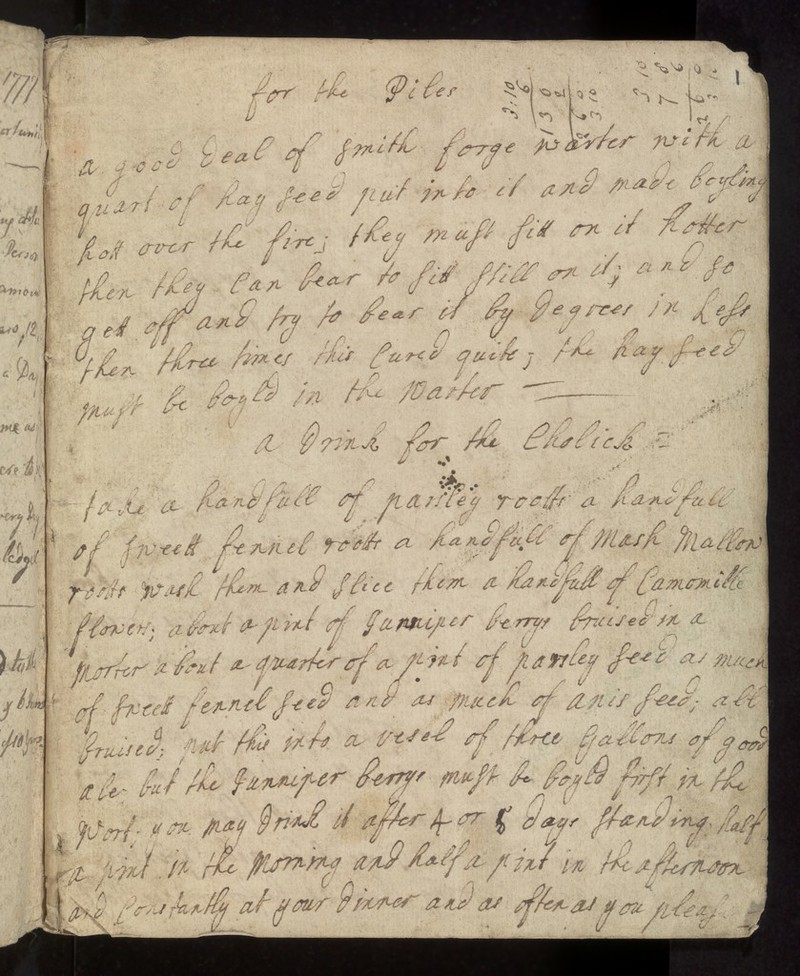 for the Piles
1
a good deal of smith forge warter with a
quart of hay seed put into it and made boyling
hott over the fire; they must sitt on it hotter
then they Can bear to sitt still on it; and so
gett off and try to bear it by Degrees in Less
then three times this Cured quite; the hay seed
must be boyld in the Warter —
a Drink for the Cholick =
take a handfull of parsley rootts a handfull
of sweett fennel rootts a handfull of Mash Mallow
rootts wash them and slice them a handfull of Camomille
flowers; about a pint of Junniper berrys bruised in a
Morter about a quarter of a pint of parsley seed as much
of sweett fennel seed and as much of anis seed; all
bruised; put this into a vesel of three Gallons of good
ale but the Junniper berrys must be boyld first in the
Wort; you may Drink it after 4 or 5 days standing; half
a pint in the Morning and half a pint in the afternoon
and Constantly at your Dinner and as often as you please